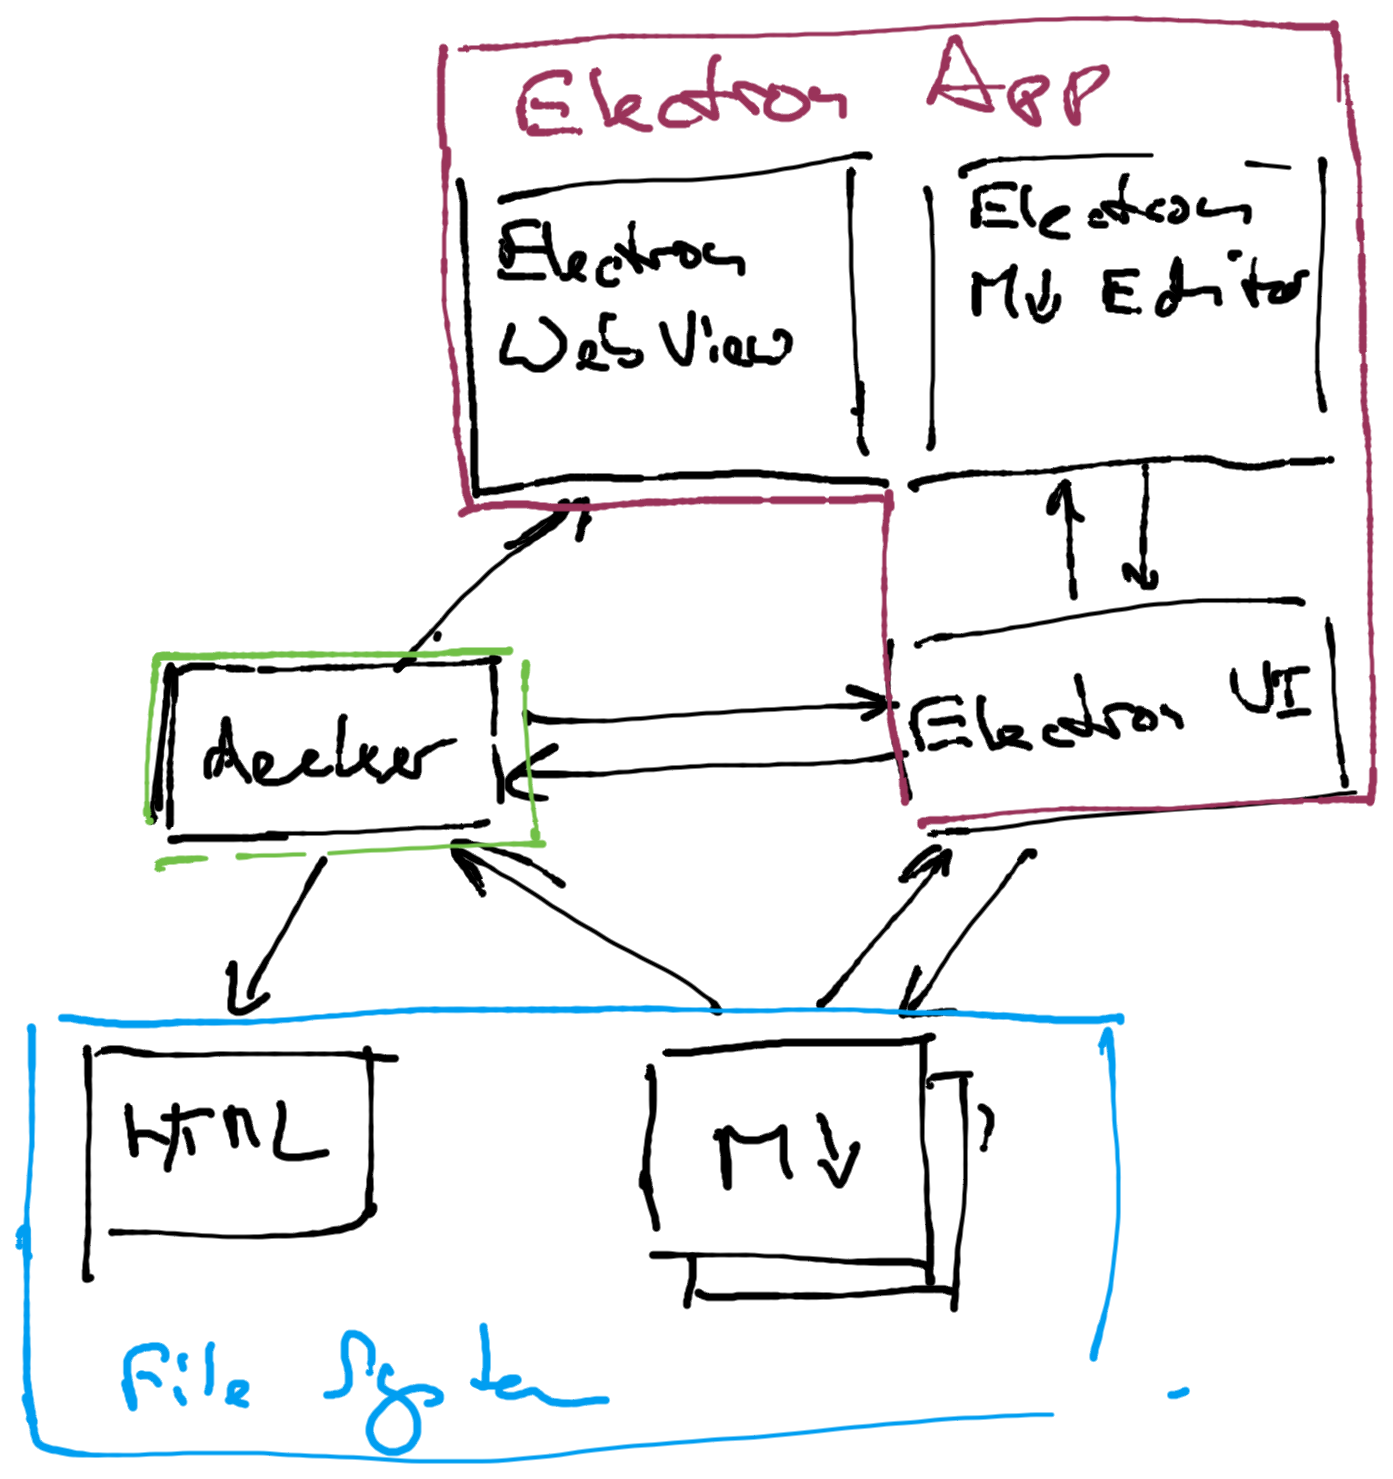 Electron App
Electron
Web View
Electron
M↓ Editor
Electron UI
HTML
M↓
File System